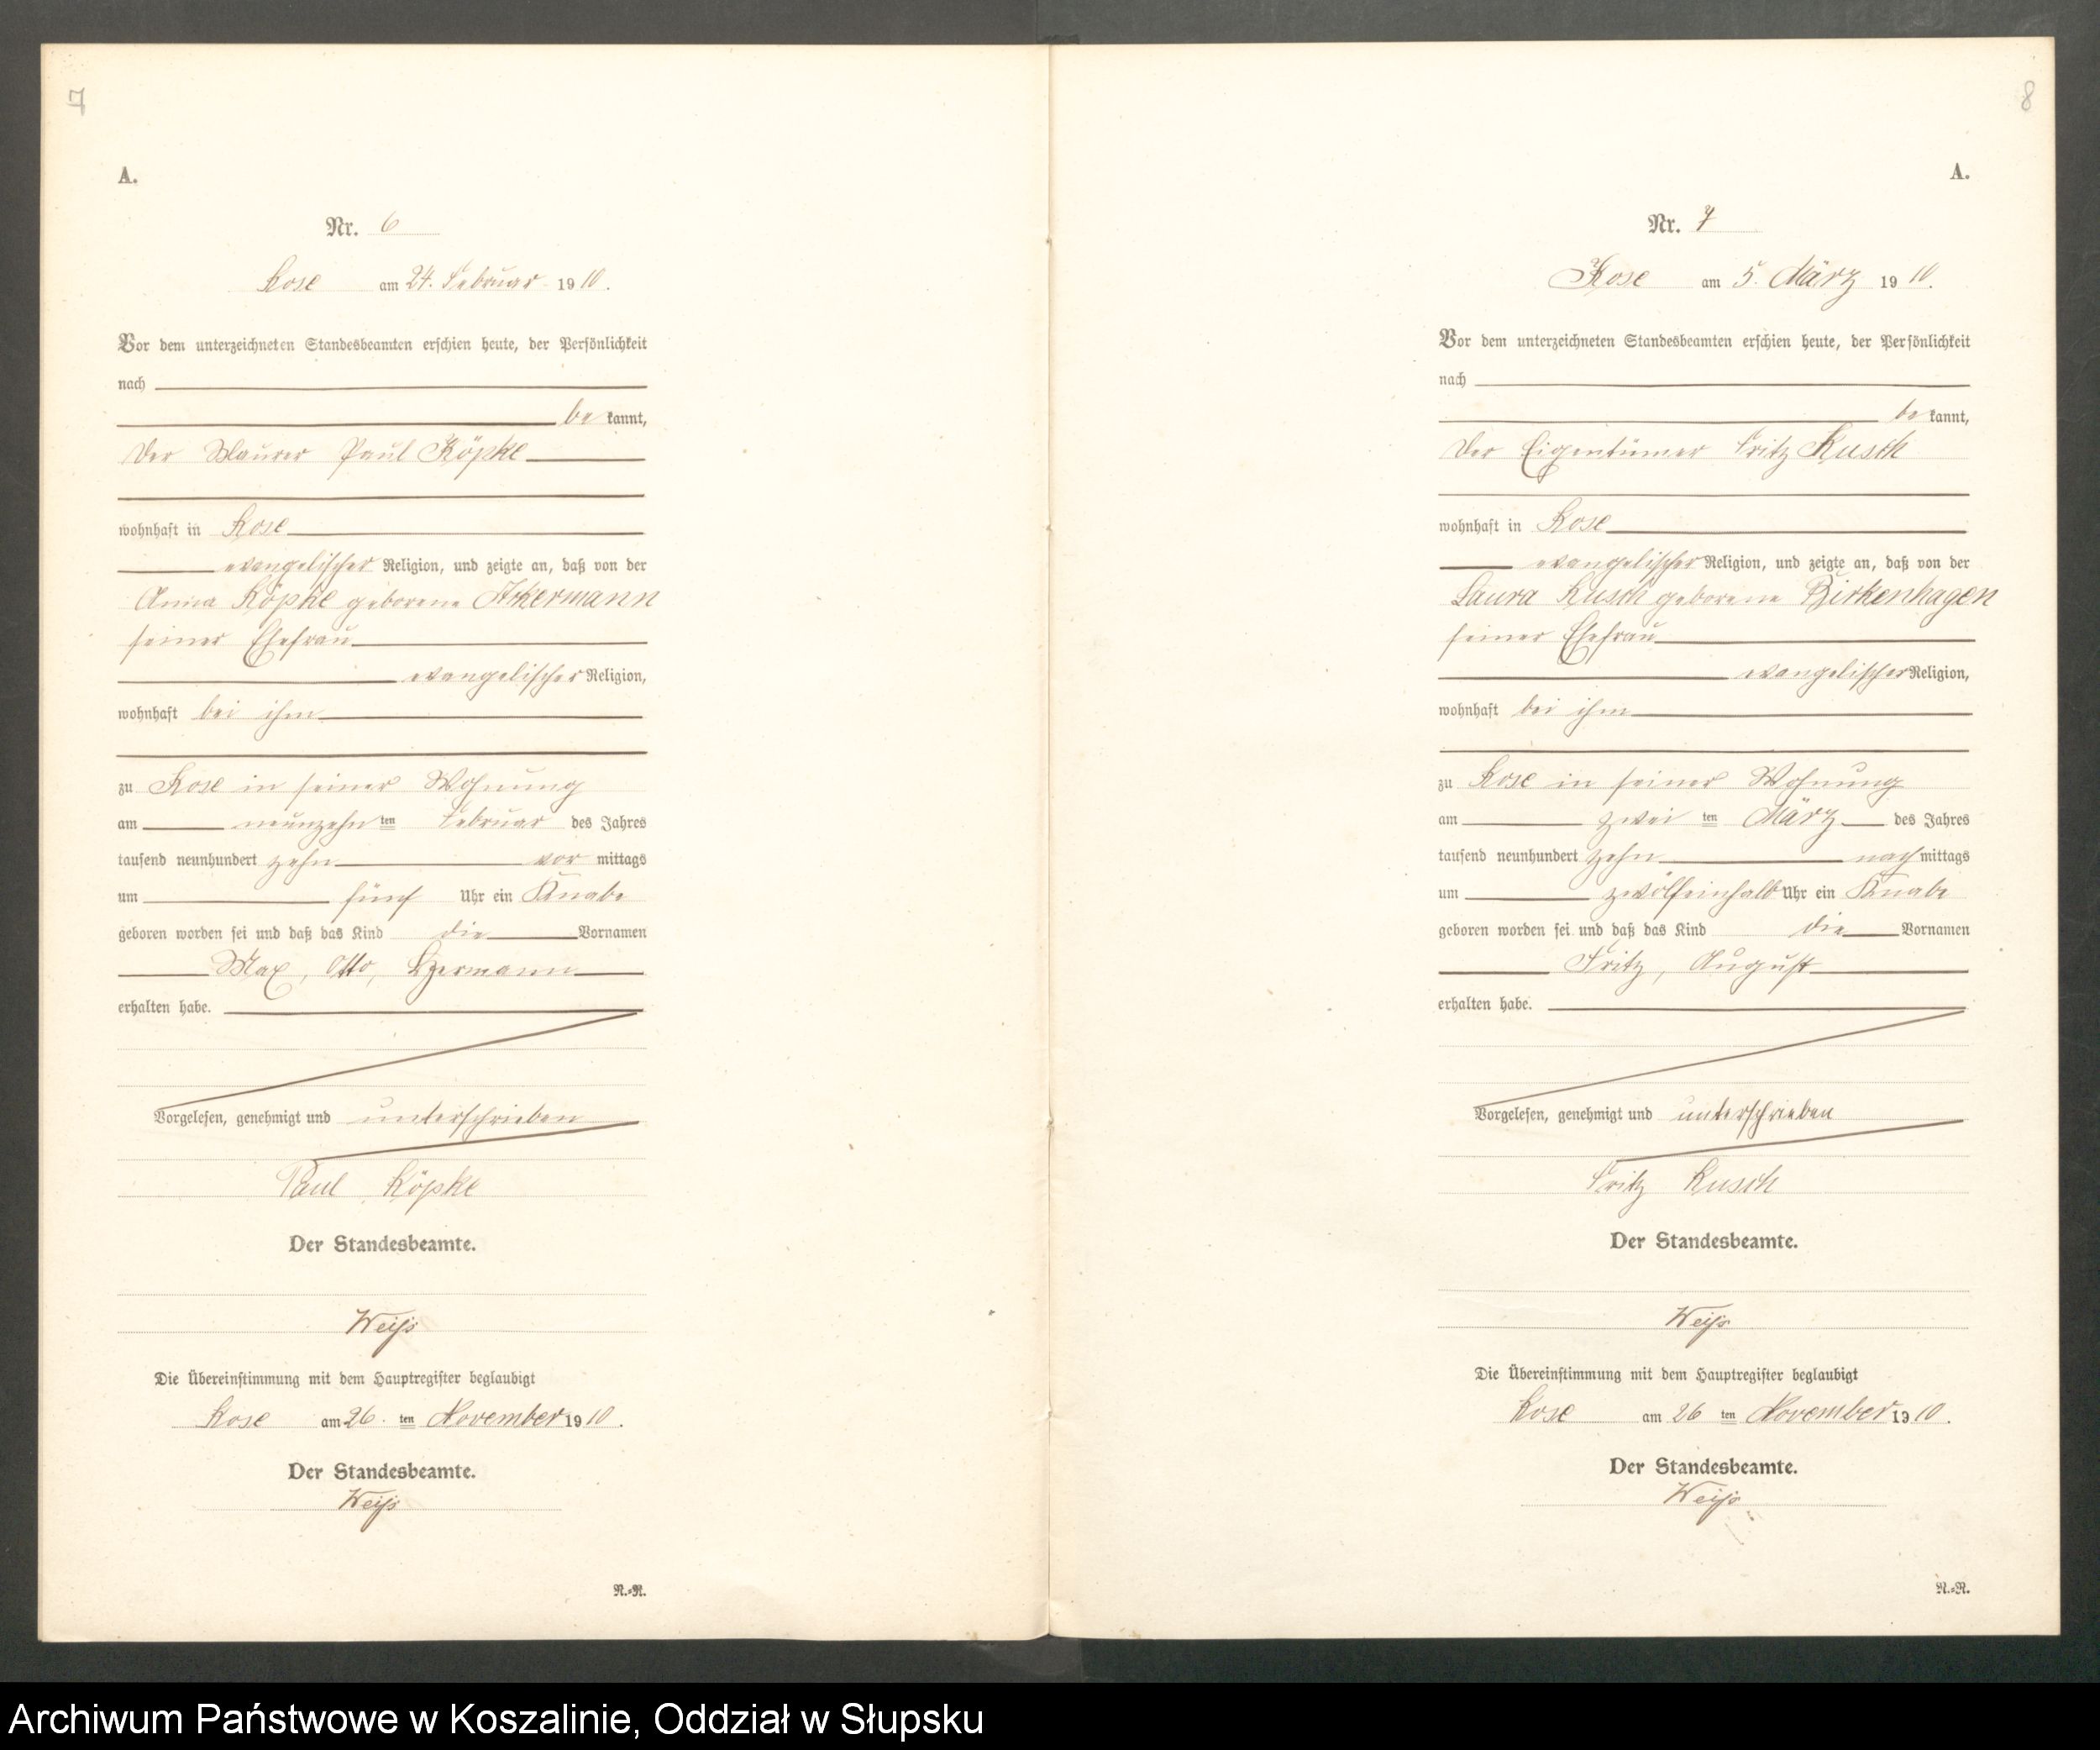 7
A.
Nr. 6
Kose am 24. Februar 1910.
Vor dem unterzeichneten Standesbeamten erschien heute, der Persönlichkeit
nach
be kannt,
der Maurer Paul Köpke
wohnhaft in Kose
evangelischer Religion, und zeigte an, daß von der
Anna Köpke geborene Ackermann
seiner Ehefrau
evangelischer Religion,
wohnhaft bei ihm
zu Kose in seiner Wohnung
am neunzehn ten Februar des Jahres
tausend neunhundert zehn vor mittags
um fünf Uhr ein Knabe
geboren worden sei und daß das Kind die Vornamen
Max, Otto, Hermann
erhalten habe.
Vorgelesen, genehmigt und unterschrieben
Paul Köpke
Der Standesbeamte.
Weiß
Die Übereinstimmung mit dem Hauptregister beglaubigt
Kose am 26. ten November 1910.
Der Standesbeamte.
Weiß
R.=R.
8
A.
Nr. 7
Kose am 5. März 1910.
Vor dem unterzeichneten Standesbeamten erschien heute, der Persönlichkeit
nach
be kannt,
der Eigentümer Fritz Kusch
wohnhaft in Kose
evangelischer Religion, und zeigte an, daß von der
Laura Kusch geborene Birkenhagen
seiner Ehefrau
evangelischer Religion,
wohnhaft bei ihm
zu Kose in seiner Wohnung
am zwei ten März des Jahres
tausend neunhundert zehn nach mittags
um zwölfeinhalb Uhr ein Knabe
geboren worden sei und daß das Kind die Vornamen
Fritz, August
erhalten habe.
Vorgelesen, genehmigt und unterschrieben
Fritz Kusch
Der Standesbeamte.
Weiß
Die Übereinstimmung mit dem Hauptregister beglaubigt
Kose am 26 ten November 1910.
Der Standesbeamte.
Weiß
R.=R.
Archiwum Państwowe w Koszalinie, Oddział w Słupsku